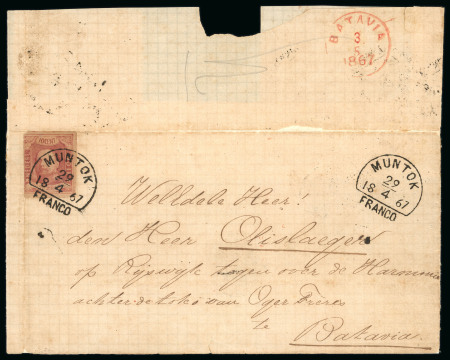 BATAVIA
3
5
1867
MUNTOK
29
18 4 67
FRANCO
MUNTOK
29
18 4 67
FRANCO
WelEdele Heer!
den Heer Olislaeger
op Rijswijk tegen over de Harmonie
achter de toko van Oger Frères
te
Batavia